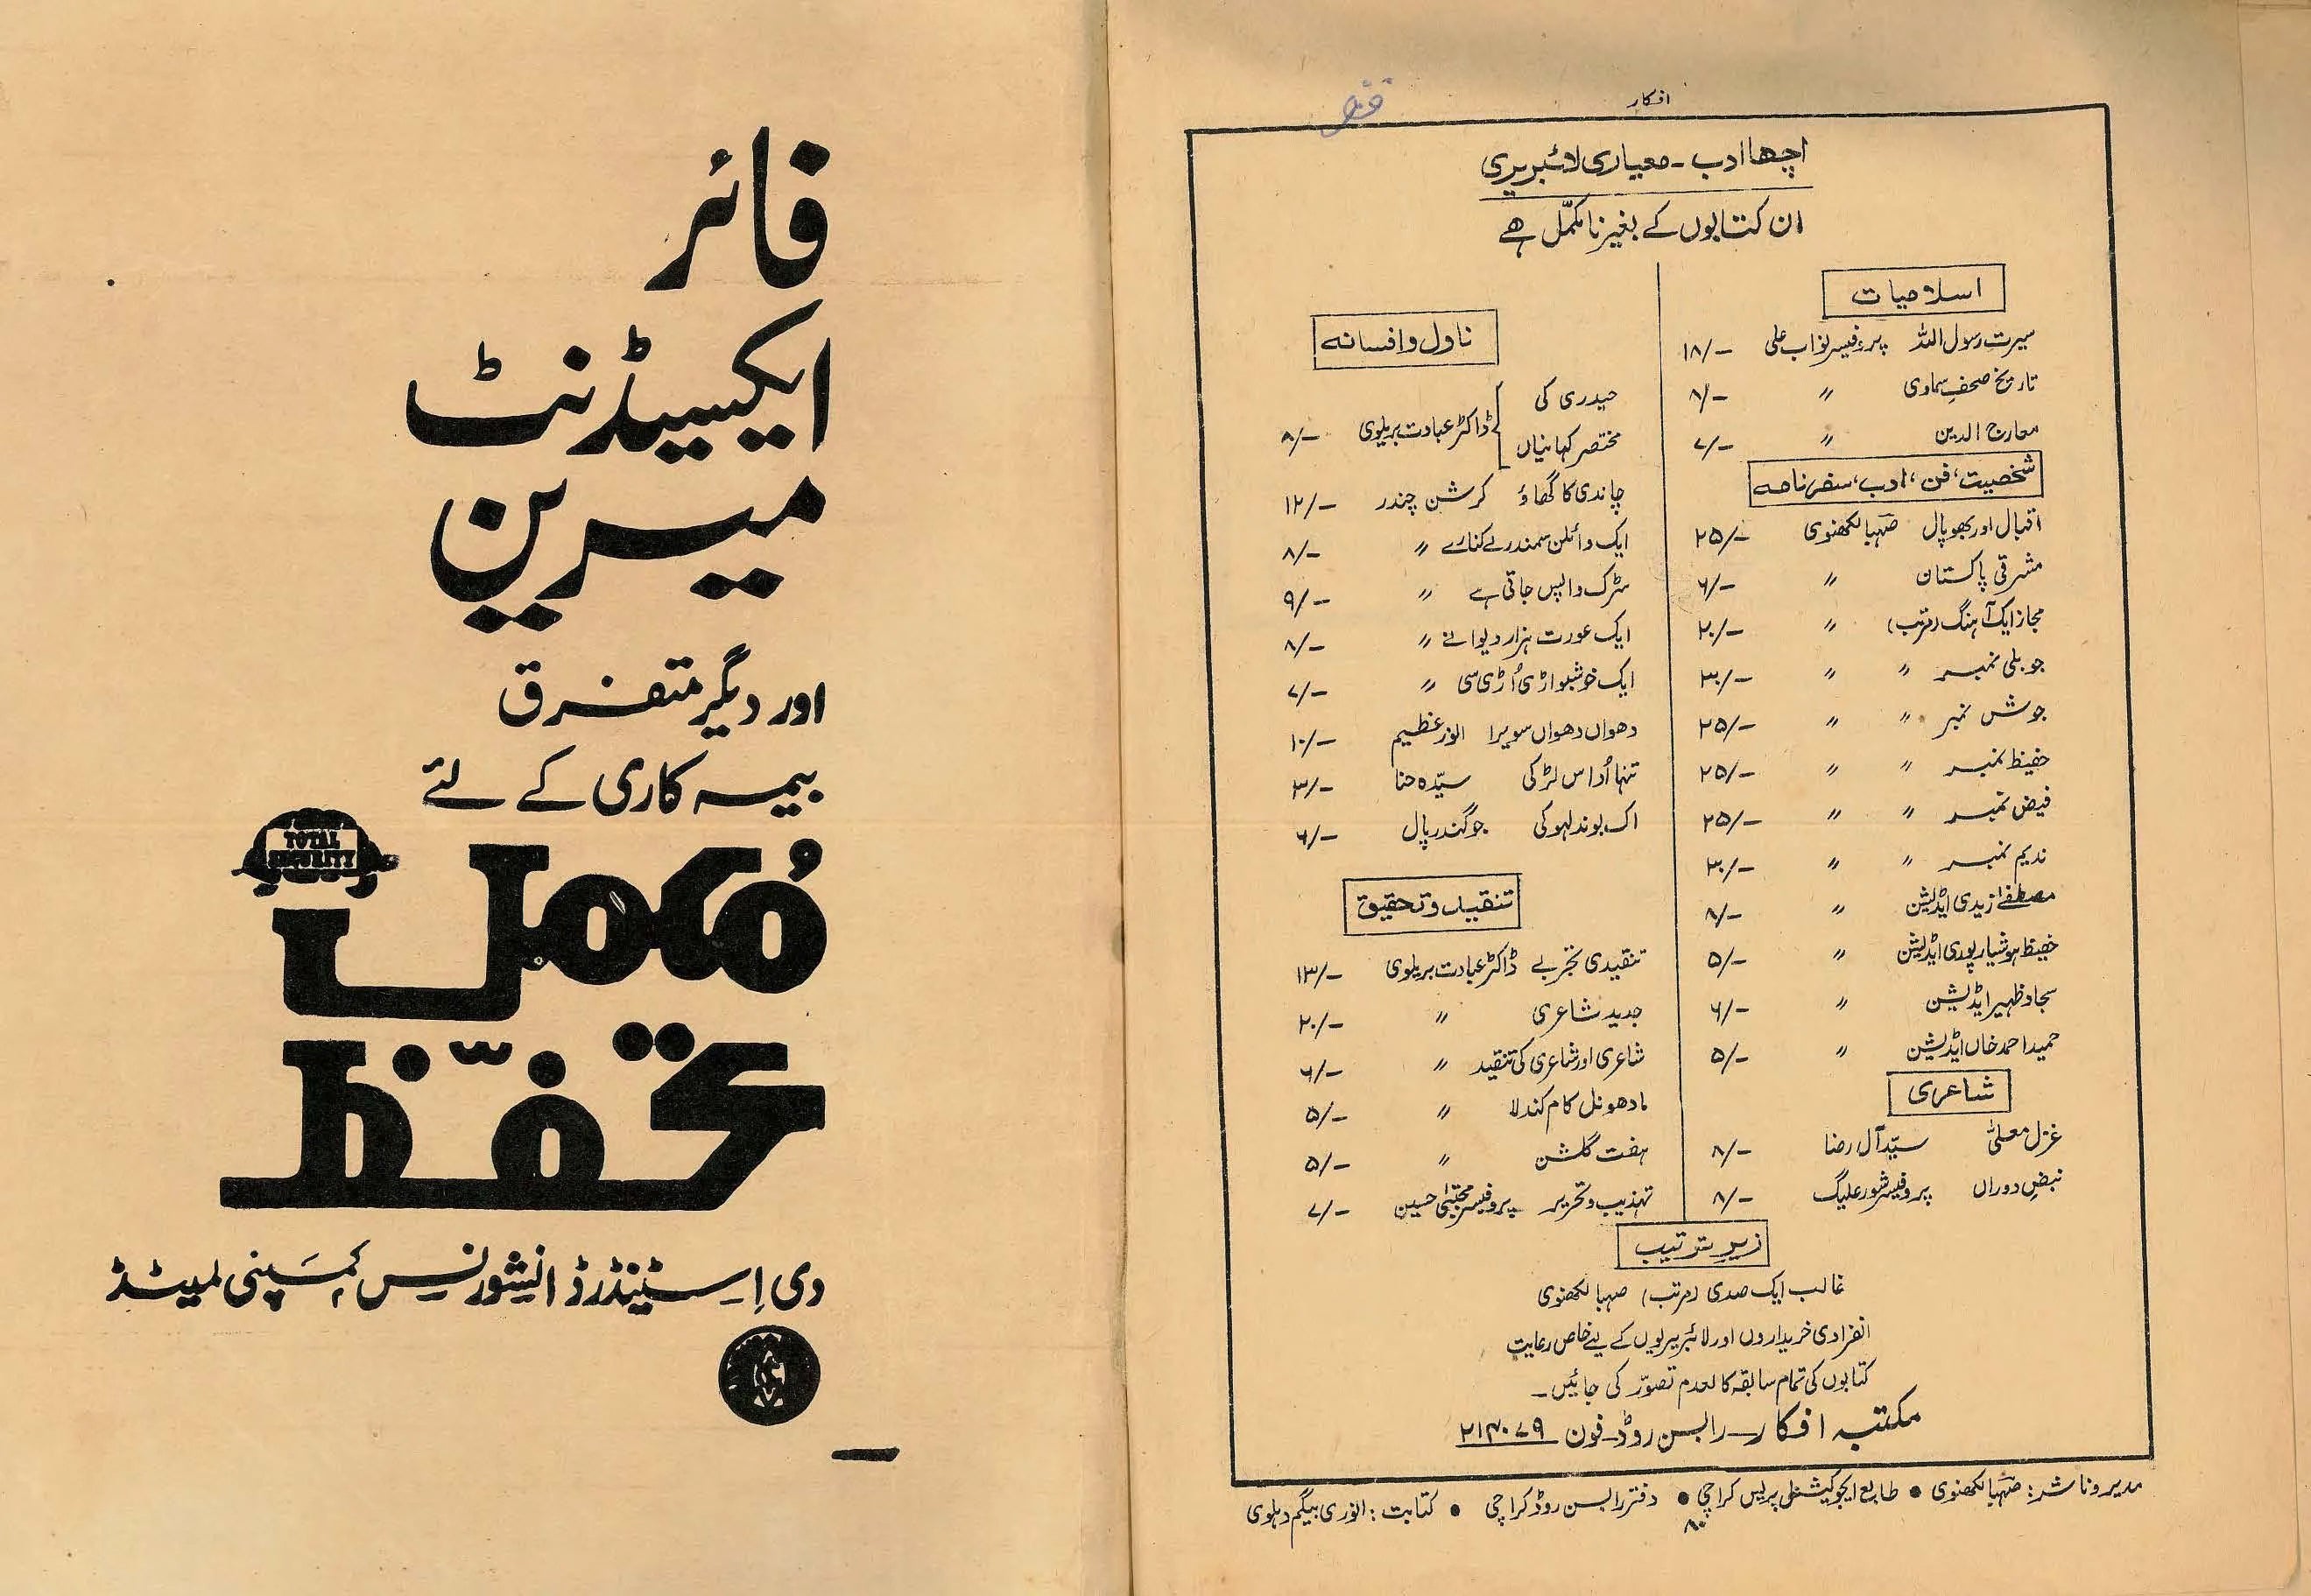 افکار
اچھا ادب ـ معیاری لائبریری
ان کتابوں کے بغیر نامکمّل ہے
اسلامیات
سیرت رسول اللہ پروفیسر نواب علی ۱۸/-
تاریخ صحفِ سماوی " ۸/-
معارج الدین " ۷/-
شخصیت، فن، ادب، سفرنامہ
اقبال اور بھوپال صہبا لکھنوی ۲۵/-
مشرقی پاکستان " ۶/-
مجاز ایک آہنگ (مرتب) " ۲۰/-
جوبلی نمبر " " ۳۰/-
جوش نمبر " " ۲۵/-
حفیظ نمبر " " ۲۵/-
فیض نمبر " " ۲۵/-
ندیم نمبر " " ۳۰/-
مصطفےٰ زیدی ایڈیشن " ۸/-
حفیظ ہوشیارپوری ایڈیشن " ۵/-
سجاد ظہیر ایڈیشن " ۶/-
حمید احمد خاں ایڈیشن " ۵/-
شاعری
غزل معلیٰ سیّد آل رضا ۸/-
نبضِ دوراں پروفیسر شور علیگ ۸/-
ناول و افسانہ
حیدری کی
مختصر کہانیاں ڈاکٹر عبادت بریلوی ۸/-
چاندی کا گھاؤ کرشن چندر ۱۲/-
ایک وائلن سمندر کے کنارے " ۸/-
سڑک واپس جاتی ہے " ۹/-
ایک عورت ہزار دیوانے " ۸/-
ایک خوشبو اڑی اُڑی سی " ۷/-
دھواں دھواں سویرا انور عظیم ۱۰/-
تنہا اُداس لڑکی سیّدہ حنا ۳/-
اک بوند لہو کی جوگندر پال ۶/-
تنقید و تحقیق
تنقیدی تجربے ڈاکٹر عبادت بریلوی ۱۳/-
جدید شاعری " ۲۰/-
شاعری اور شاعری کی تنقید " ۶/-
مادھونل کام کندلا " ۵/-
ہفت گلشن " ۵/-
تہذیب و تحریر پروفیسر مجتبیٰ حسین ۷/-
زیرِ ترتیب
غالب ایک صدی (مرتب) صہبا لکھنوی
انفرادی خریداروں اور لائبریریوں کے لیے خاص رعایت
کتابوں کی تمام سابقہ کالعدم تصوّر کی جائیں ـ
مکتبہ افکار ـ رابسن روڈ ـ فون ۲۱۴۰۷۹
مدیر و ناشر: صہبا لکھنوی ● طابع ایجوکیشنل پریس کراچی ● دفتر رابسن روڈ کراچی ● کتابت: انوری بیگم دہلوی
۸۰
فائر
ایکسیڈنٹ
میرین
اور دیگر متفرق
بیمہ کاری کے لئے
TOTAL
SECURITY
مُکمل
تحفّظ
دی اِسٹینڈرڈ انشورنس کمپنی لمیٹڈ